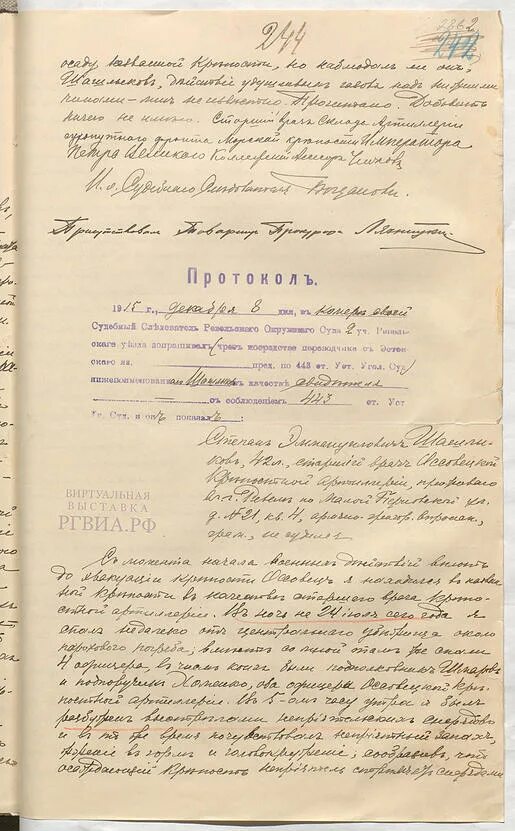 244
2862
242
осаду названной крѣпости, но наблюдалъ ли онъ,
Шашельсковъ, дѣйствіе удушливыхъ газовъ надъ нижними
чинами – мнѣ не извѣстно. Прочитано. Добавить
ничего не имѣю. Старшій врачъ Склада Артиллеріи
сухопутнаго фронта Морской крѣпости Императора
Петра Великаго Коллежскій Ассесоръ
И. о. Судебнаго Слѣдователя Богдановъ.
Присутствовалъ Товарищъ Прокурора
Протоколъ.
1915 г., декабря 8 дня, въ камерѣ своей
Судебный Слѣдователь Ревельскаго Окружнаго Суда 2 уч. Ревель-
скаго уѣзда допрашивалъ (чрезъ посредство переводчика съ Эстон-
скаго яз. пред. по 443 ст. Уст. Угол. Суд.)
нижепоименованнаго въ качествѣ свидѣтеля
съ соблюденіемъ 443 ст. Уст
Уг. Суд. и онъ показалъ:
Степанъ Эммануиловичъ
42 л., старшій врачъ Осовецкой
крѣпостной артиллеріи, проживаю
въ г. Ревелѣ по Малой Перновской ул.
д. № 21, кв. 4,
грам., не судился
ВИРТУАЛЬНАЯ
ВЫСТАВКА
РГВИА.РФ
Съ момента начала военныхъ дѣйствій вплоть
до эвакуаціи крѣпости Осовецъ я находился въ назван-
ной крѣпости въ качествѣ старшаго врача крѣпо-
стной артиллеріи. Въ ночь на 24 іюля сего года я
спалъ недалеко отъ центральнаго убѣжища около
порохового погреба; вмѣстѣ со мной тамъ же спали
4 офицера, въ числѣ коихъ были подполковникъ
и подпоручикъ Хоменко, оба офицеры Осовецкой крѣ-
постной артиллеріи. Въ 5-омъ часу утра я былъ
разбуженъ выстрѣлами непріятельскихъ
и въ то же время почувствовалъ непріятный запахъ,
жженіе въ горлѣ и головокруженіе; сообразивъ, что
осаждающій крѣпость непріятель стрѣляетъ снарядами